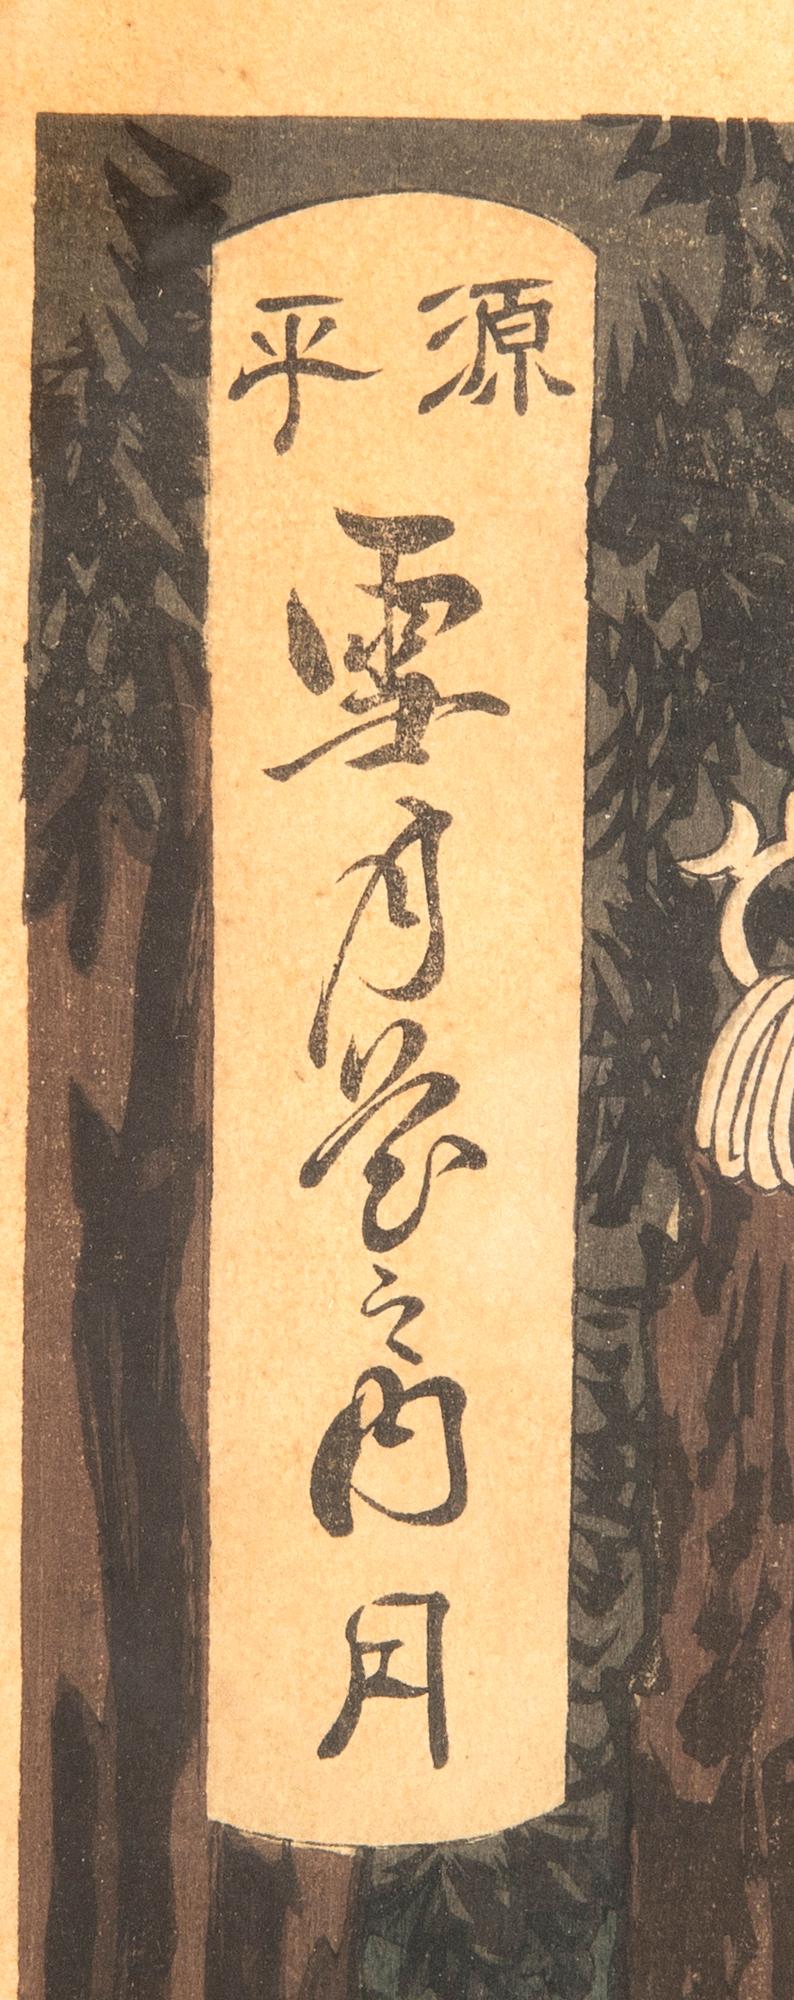 源平
雪月花之内
月